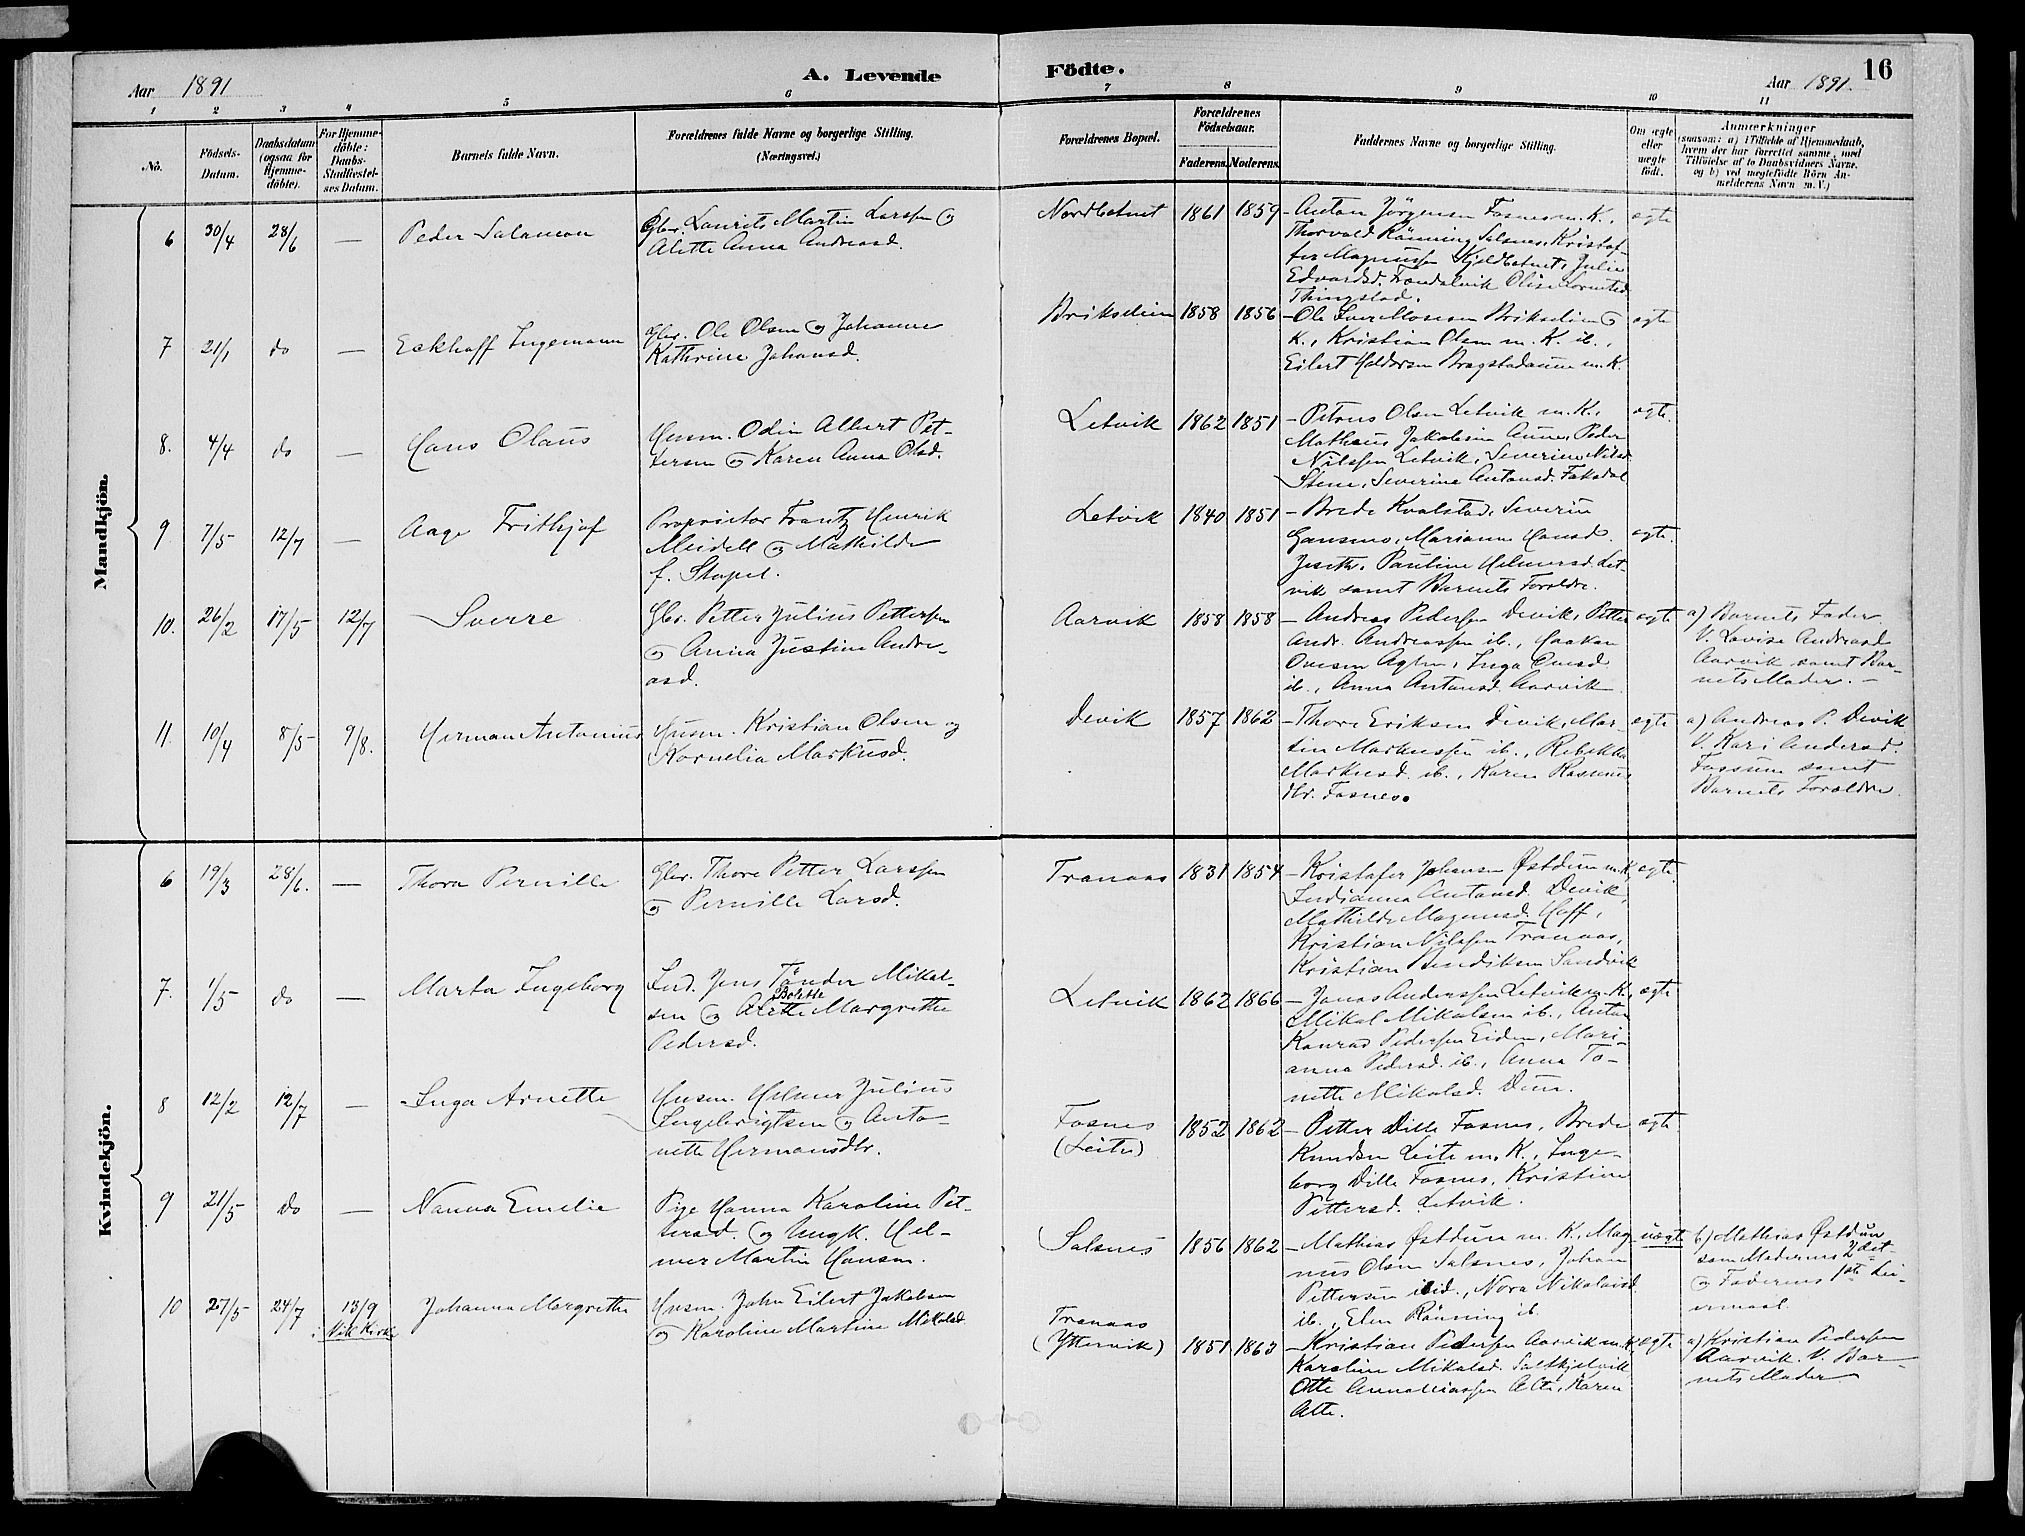 Aar 1891
A. Levende
Födte.
Aar 1891.
16
1 2 3 4 5 6 7 8 9 10 11
No.
Födsels-
Datum.
Daabsdatum
(ogsaa for
Hjemme-
döbte).
For Hjemme-
döbte:
Daabs-
Stadfæstel-
ses Datum.
Barnets fulde Navn.
Forældrenes fulde Navne og borgerlige Stilling.
(Næringsvei.)
Forældrenes Bopæl.
Forældrenes
Födselsaar.
Faderens. Moderens.
Faddernes Navne og borgerlige Stilling.
Om ægte
eller
uægte
födt.
Anmærkninger
(saasom: a) i Tilfælde af Hjemmedaab,
hvem der har forrettet samme, med
Tilföielse af to Daabsvidners Navne,
og b) ved uægtefödte Börn An-
melderens Navn m. V.)
Mandkjön.
6 30/4 28/6 — Peder Salamon
Gbr. Laurits Martin Larssen og
Alette Anna Andreasd.
Nordbotnet 1861 1859
– Anton Jörgensen Fosnes m. K.,
Thorvald Rönning Salsnes, Kristof-
fer Magnussen Kjeldbotnet, Julie
Edvardsd. Frandalvik Olise
Thingstad.
ægte
7 21/1 do — Eckhoff Ingemann
Gbr. Ole Olsen og Johanna
Kathrine Johansd.
Brikseim 1858 1856
– Ole Iver Mosesen
K., Kristian Olsen m. K. ib.,
Eilert Haldorsen Bragstadaune m. K.
ægte
8. 4/4 do — Hans Olaus
Husm. Odin Albert Pet-
tersen og Karen Anna Olsd.
Letvik 1862 1851
– Petrus Olsen Letvik m. K.,
Matheus Jakobsen Aunes, Peder
Nilssen Letvik, Severine Nilsd.
Stene, Severine Antonsd. Faksdal
ægte.
9. 7/5 12/7 — Aage Frithjof
Proprietær Frantz Henrik
Meidell og Mathilde
f. Stapel.
Letvik 1840 1851
– Brede Kvalstad, Severin
Gansmo, Marianne Hansd.
Pauline Helmersd. Let-
vik samt Barnets Forældre.
ægte.
10. 26/2 17/5 12/7 Sverre
Gbr. Petter Julius Pettersen
og Anna Justine Andre-
asd.
Aarvik 1858 1858
– Andreas Pedersen Devik, Petter
Andr. Andreassen ib., Haakon
Ounsen Aglen, Inga Ounsd.
ib., Anna Antonsd. Aarvik
ægte
a) Barnets Fader
V. Lovise Andreasd
Aarvik samt Bar-
nets Moder. –
11. 10/4 8/5 9/8. Herman Antonius
Husm. Kristian Olsen og
Kornelia Markusd.
Devik 1857 1862
– Thore Eriksen Devik, Mar-
tin Markussen ib., Rebekka
Markusd. ib., Karen Rasmus-
dtr. Fosnes.
ægte
a) Andreas P. Devik
V. Kari Andersd.
Fossum samt
Barnets Forældre.
Kvindekjön.
6 19/3 28/6. — Thora Pernille
Gbr. Thore Petter Larssen
og Pernille Larsd.
Tranaas 1831 1854
– Kristofer Johansen Østduun m. K.
Indianna Antonsd. Devik,
Mathilde Magnusd. Hoff,
Kristian Nilssen Tranaas,
Kristian Bendiksen Sandvik
ægte.
7. 1/5 do — Marta Ingeborg
Ind. Jens Tönder Mikal-
Bolette
sen og Margrethe
Pedersd.
Letvik 1862 1866
– Jonas Anderssen Letvik m. K.,
Mikal Mikalsen ib., Anton
Konrad Pedersen Eiden, Mari-
anna Pedersd. ib., Anna To-
nette Mikalsd. Duun.
ægte
8 12/2 12/7 — Inga Arnette
Husm. Helmer Julius
Ingebrigtsen og Anto-
nette Hermansdtr.
Fosnes
(Leite) 1852 1862
– Petter Dille Fosnes, Brede
Knudsen Leite m. K., Inge-
borg Dille Fosnes, Kristine
Pettersd. Letvik.
ægte
9 21/5 do — Nanna Emelie
Pige Hanna Karoline Pet-
tersd. og Ungk. Hel-
mer Martin Hansen.
Salsnes 1856 1862
– Mathias Østduun m. K., Mag-
nus Olsen Salsnes, Johan
Pettersen ibid., Nora Nikolaisd.
ib., Elen Rönning ib.
uægte
b) Mathias Østduun
som Moderens 2det
og Faderens 1ste Lei-
ermaal.
10 27/5 24/7 13/9
i Vik Kirke
Johanna Margrethe
Husm. John Eilert Jakobsen
og Karoline Martine Mikalsd.
Tranaas
(Yttervik) 1851 1863
– Kristian Pedersen Aarvik m. K.
Karoline Mikalsd. Saltkjelvik
Otte Ananiassen Alte, Karen
Alte.
ægte
a) Kristian Pedersen
Aarvik. V. Bar-
nets Moder